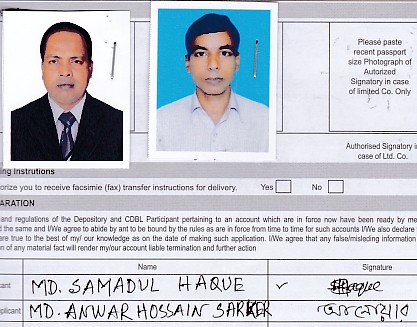 Please paste
recent passport
size Photograph of
Autorized
Signatory in case
of limited Co. Only
Authorised Signatory i
case of Ltd. Co.
ing Instrutions
orize you to receive facsimie (fax) transfer instructions for delivery. Yes No
ARATION
and regulations of the Depository and CDBL Participant pertaining to an account which are in force now have been ready by me
d the same and I/We agree to abide by ant to be bound by the rules as are in force from time to time for such accounts I/We also declare
are true to the best of my/ our knowledge as on the date of making such application. I/We agree that any false/misleading information
on of any material fact will render my/our account liable termination and further action
Name Signature
cant MD. SAMADUL HAQUE Haque
plicant MD. ANWAR HOSSAIN SARKER আনোয়ার